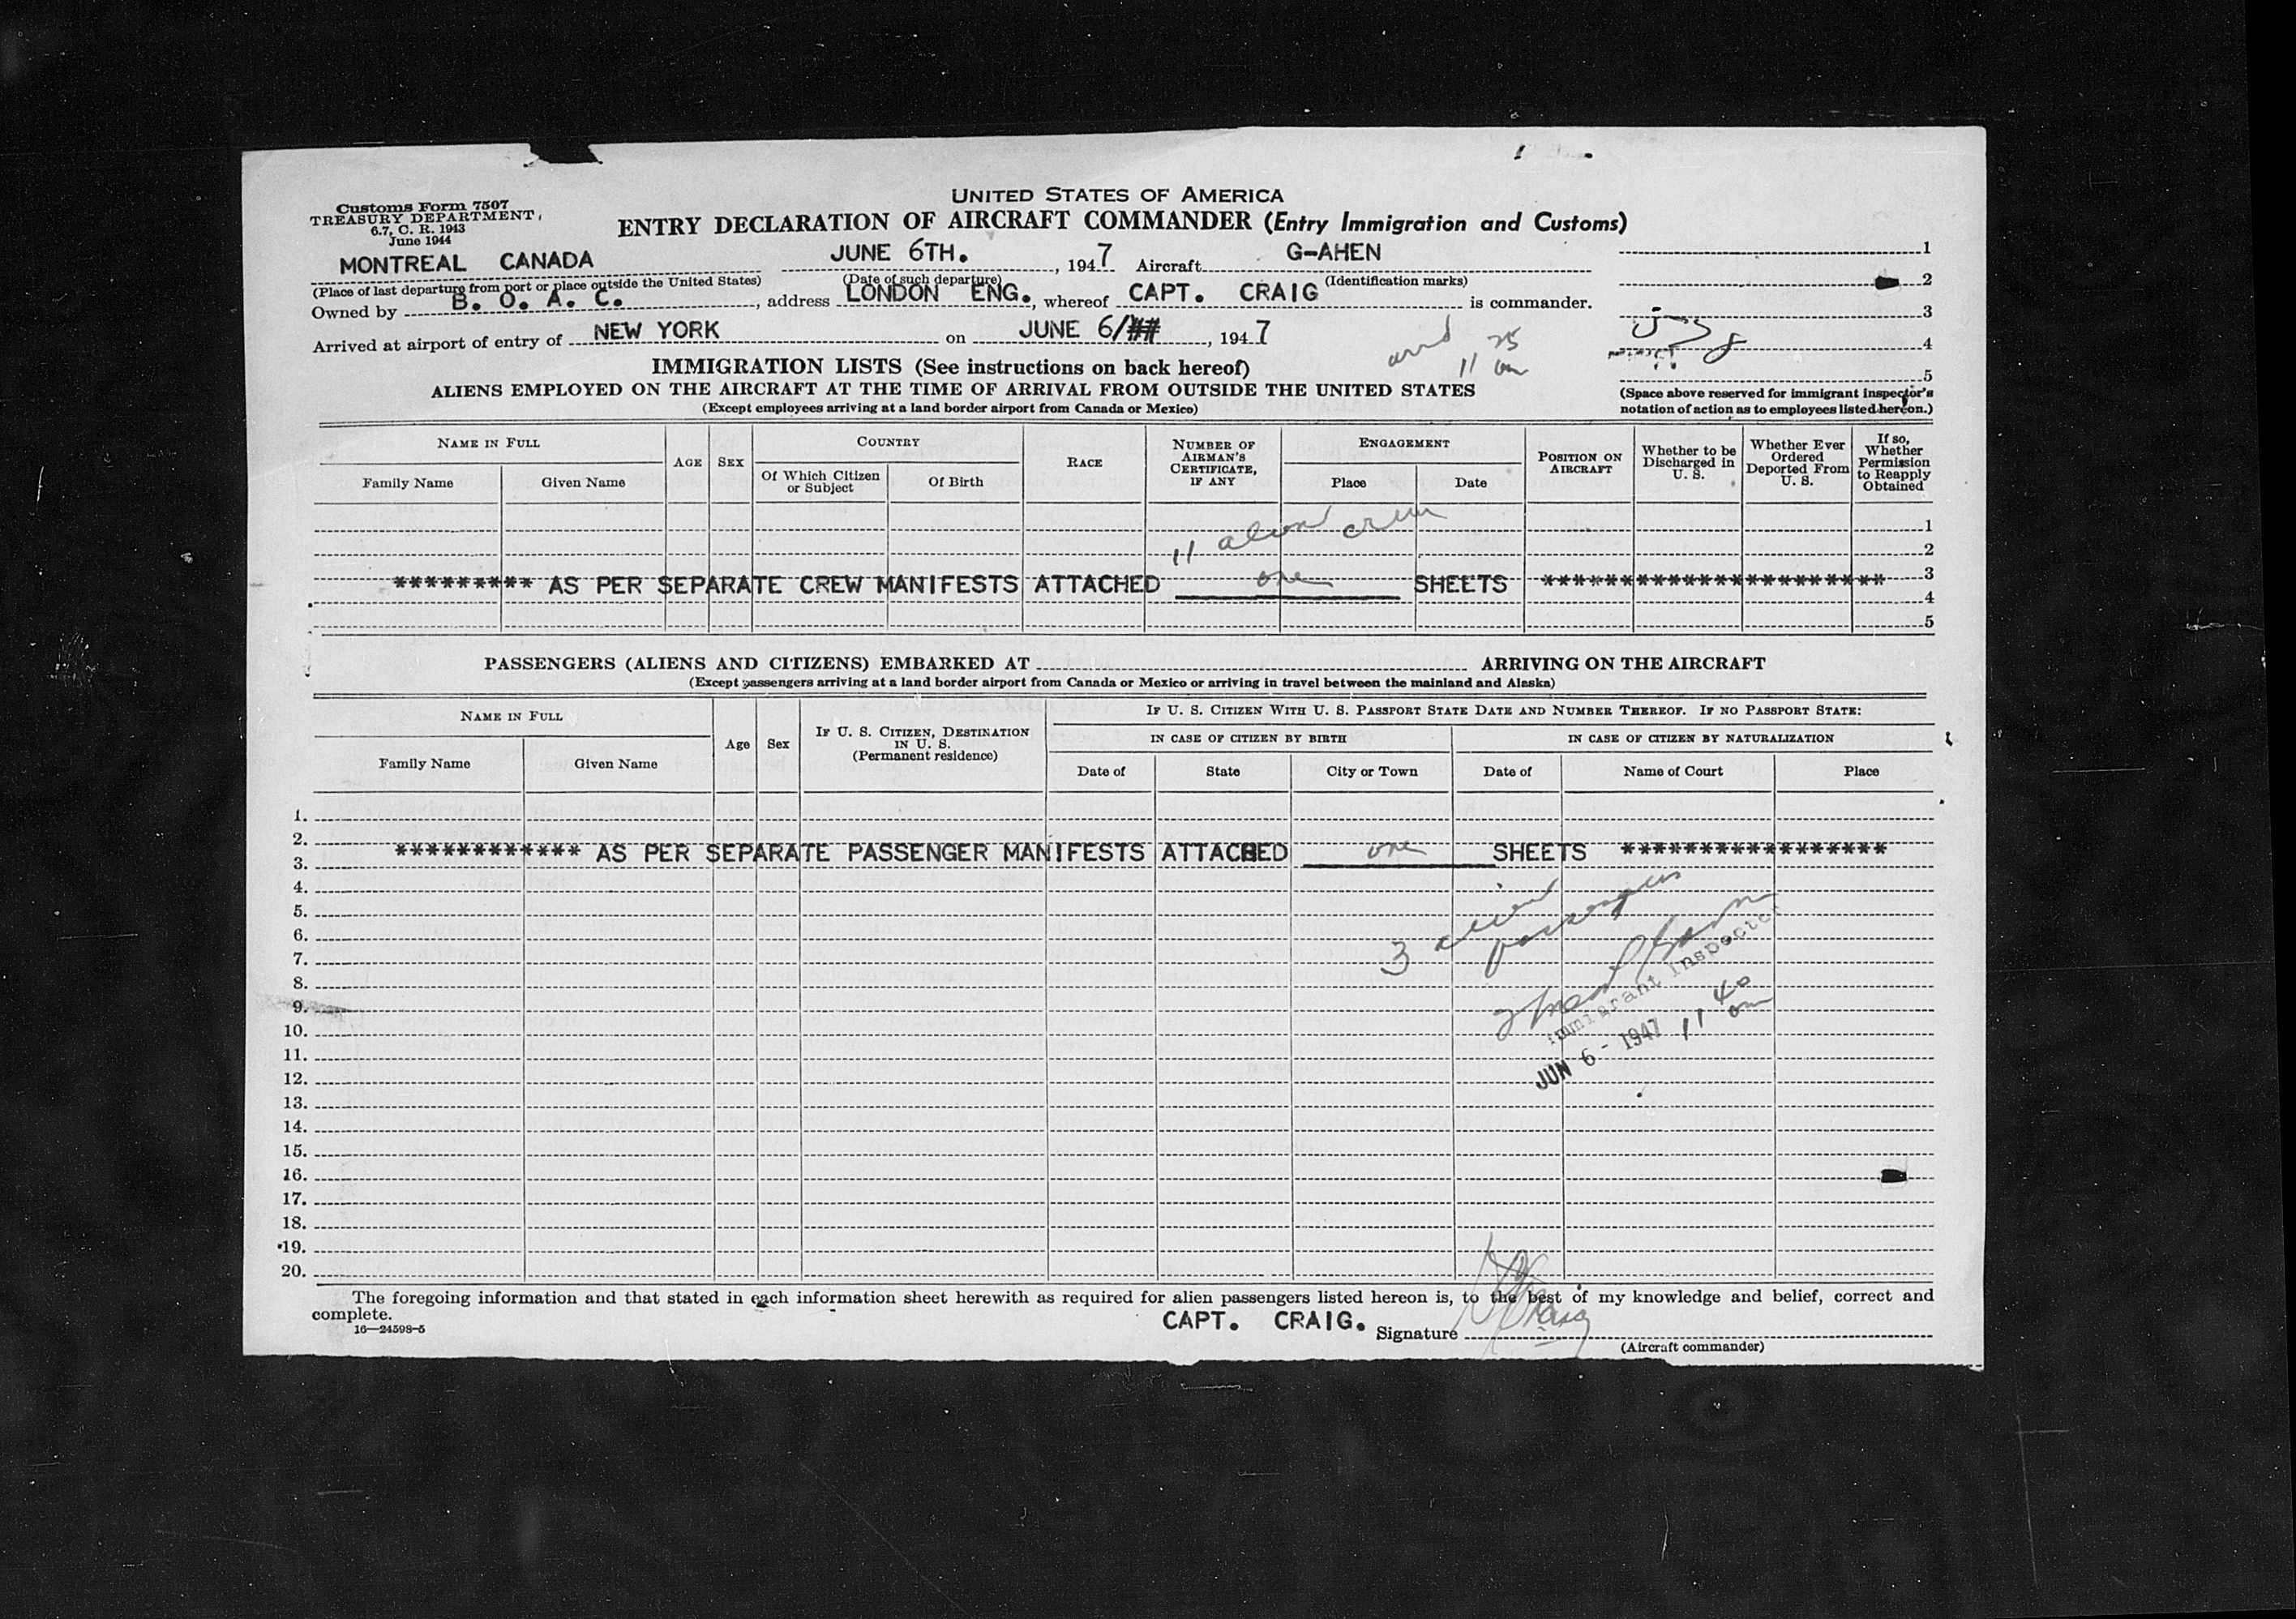 UNITED STATES OF AMERICA
Customs Form 7507
TREASURY DEPARTMENT
6.7, C. R. 1943
June 1944
ENTRY DECLARATION OF AIRCRAFT COMMANDER (Entry Immigration and Customs)
MONTREAL CANADA JUNE 6TH. , 1947 Aircraft G-AHEN
(Place of last departure from port or place outside the United States) (Date of such departure) (Identification marks)
Owned by B. O. A. C. , address LONDON ENG. , whereof CAPT. CRAIG is commander.
Arrived at airport of entry of NEW YORK on JUNE 6/## , 1947
11 25 am
1
2
3
4
5
(Space above reserved for immigrant inspector's
notation of action as to employees listed hereon.)
IMMIGRATION LISTS (See instructions on back hereof)
ALIENS EMPLOYED ON THE AIRCRAFT AT THE TIME OF ARRIVAL FROM OUTSIDE THE UNITED STATES
(Except employees arriving at a land border airport from Canada or Mexico)
NAME IN FULL
Family Name Given Name
AGE
SEX
COUNTRY
Of Which Citizen or Subject
Of Birth
RACE
NUMBER OF AIRMAN'S CERTIFICATE, IF ANY
ENGAGEMENT
Place Date
POSITION ON AIRCRAFT
Whether to be Discharged in U. S.
Whether Ever Ordered Deported From U. S.
If so, Whether Permission to Reapply Obtained
11 alien crew
1
2
********* AS PER SEPARATE CREW MANIFESTS ATTACHED one SHEETS ********************** 3
4
5
PASSENGERS (ALIENS AND CITIZENS) EMBARKED AT ARRIVING ON THE AIRCRAFT
(Except passengers arriving at a land border airport from Canada or Mexico or arriving in travel between the mainland and Alaska)
NAME IN FULL
Family Name Given Name
Age
Sex
IF U. S. CITIZEN, DESTINATION IN U. S.
(Permanent residence)
IF U. S. CITIZEN WITH U. S. PASSPORT STATE DATE AND NUMBER THEREOF. IF NO PASSPORT STATE:
IN CASE OF CITIZEN BY BIRTH IN CASE OF CITIZEN BY NATURALIZATION
Date of State City or Town Date of Name of Court Place
1.
2.
************ AS PER SEPARATE PASSENGER MANIFESTS ATTACHED one SHEETS *****************
3.
4.
5.
6.
7.
8.
9.
10.
11.
12.
13.
14.
15.
16.
17.
18.
19.
20.
3 alien passengers
Immigrant Inspector
JUN 6 - 1947 11 40 am
The foregoing information and that stated in each information sheet herewith as required for alien passengers listed hereon is, to the best of my knowledge and belief, correct and
complete.
16—24598-5
CAPT. CRAIG. Signature Craig
(Aircraft commander)